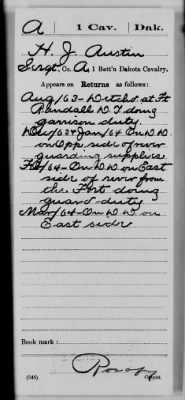 A | 1 Cav. | Dak.
H. J. Austin
Sergt., Co. A, 1 Batt'n Dakota Cavalry.
Appears on Returns as follows:
Aug/63-Detchd. at Ft
Randall D.T. doing
garrison duty.
Dec/63 & Jan/64 On D.D.
on Opp. side of river
guarding supplies
Feb/64-On D.D. on East
side of river from
the Fort doing
guard duty
Mar/64-On D.D. on
East side
Book mark:
(548)
Copyist.